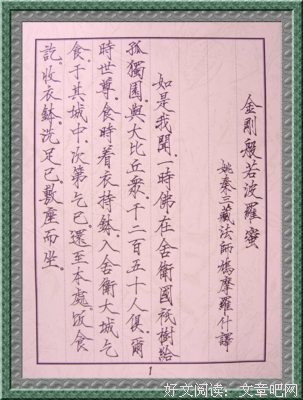 金剛般若波羅蜜
姚秦三藏法師鳩摩羅什譯
如是我聞.一時佛在舍衛國祇樹給
孤獨園.與大比丘衆.千二百五十人俱.爾
時世尊.食時着衣持鉢.入舍衛大城乞
食.于其城中.次第乞已.還至本處.飯食
訖.收衣鉢.洗足已.敷座而坐.
1
好文阅读：文章吧网